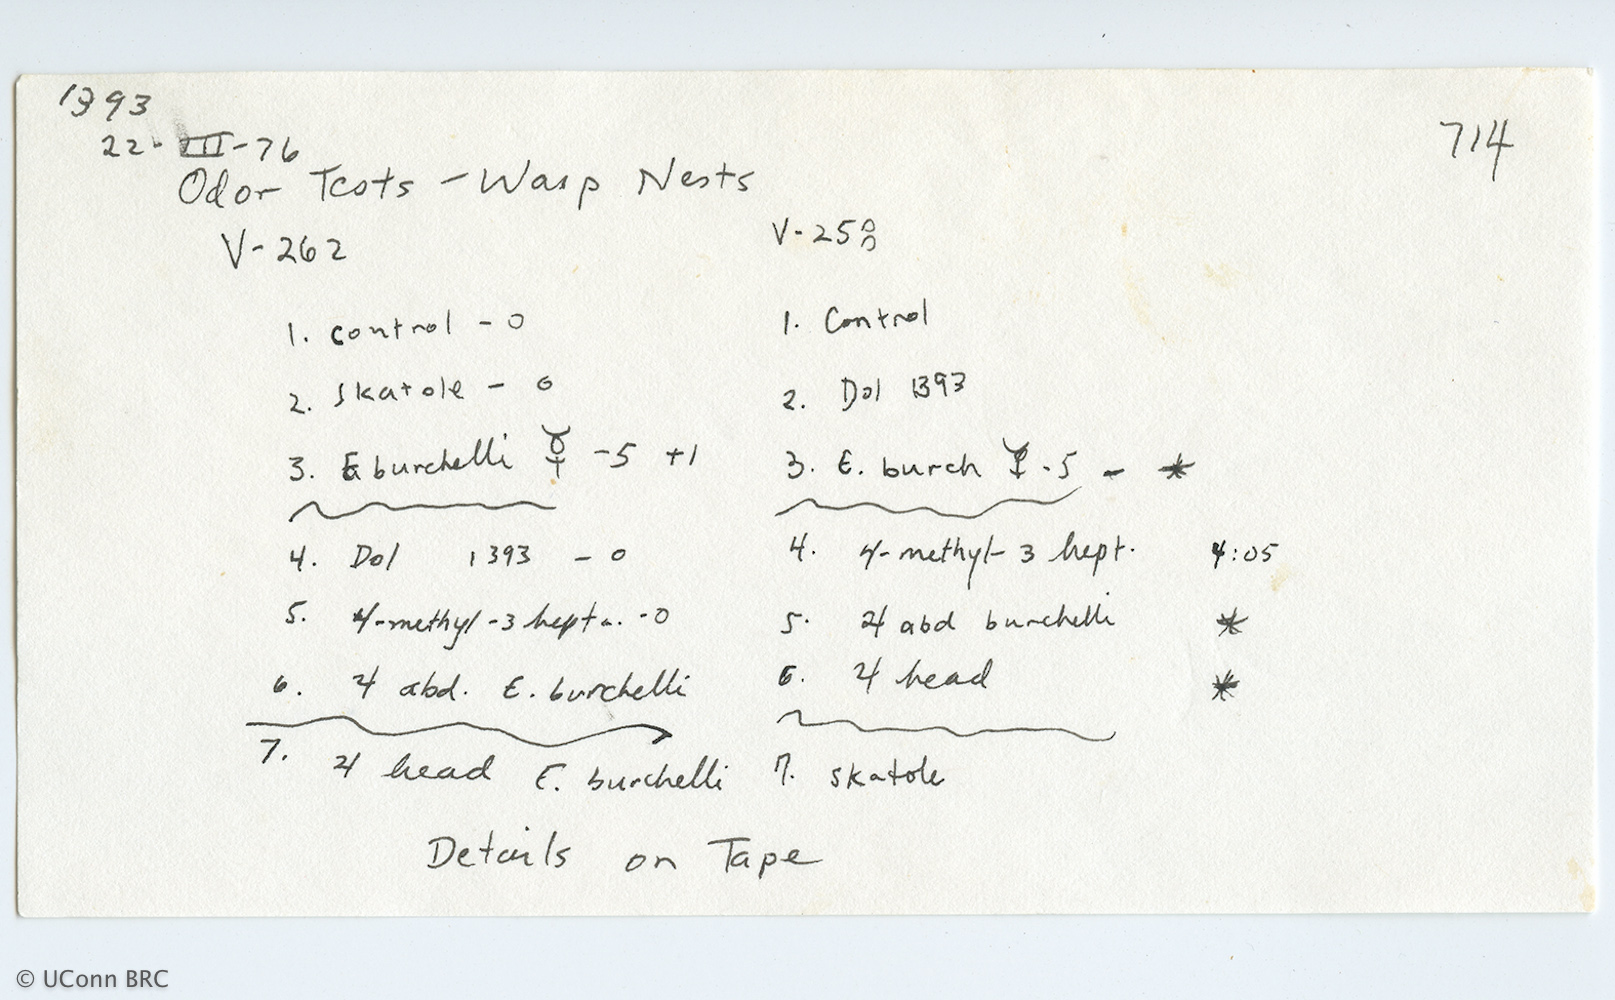 1393
714
22-III-76
Odor Tests - Wasp Nests
V-262
1. control - 0
2. skatole - 0
3. E burchelli ☿ -5 +1
4. Dol 1393 - 0
5. 4-methyl-3 hepta. -0
6. 4 abd. E. burchelli
7. 4 head E. burchelli
V-258
1. Control
2. Dol 1393
3. E. burch ☿ -5 - *
4. 4-methyl-3 hept. 4:05
5. 4 abd burchelli *
6. 4 head *
7. skatole
Details on Tape
© UConn BRC